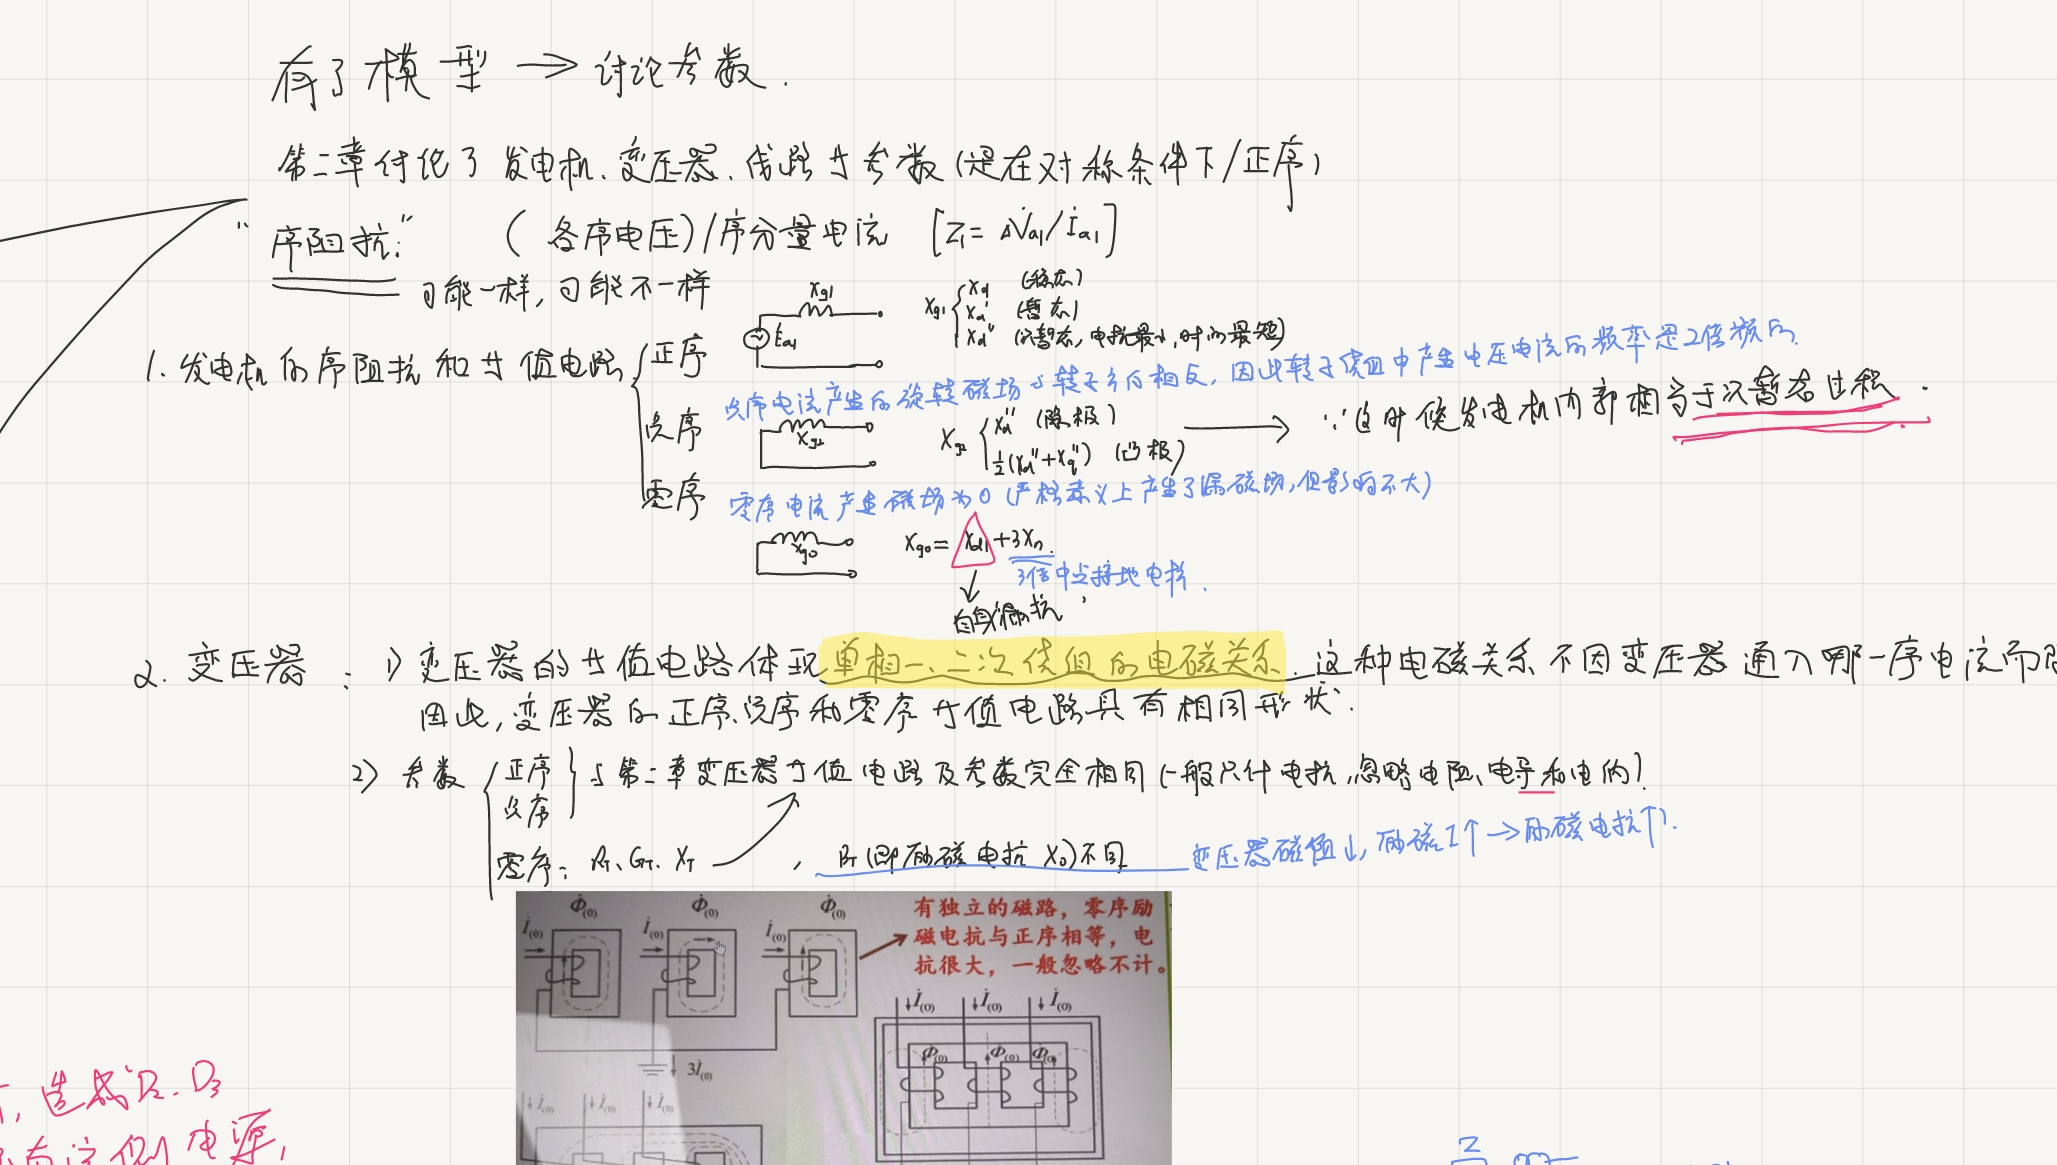 有了模型 → 讨论参数.
第二章讨论了发电机、变压器、线路等参数(是在对称条件下/正序)
"序阻抗:" (各序电压)/序分量电流 [Z1= ΔV̇a1/İa1]
可能一样,可能不一样
1. 发电机的序阻抗和等值电路
正序
Ėa1 Xg1
Xg1 { Xd (稳态)
Xd' (暂态)
Xd'' (次暂态,电抗最小,时间最短)
负序电流产生的旋转磁场与转子方向相反,因此转子绕组中产生电压电流的频率是2倍频的.
负序
Xg2
Xg2 { Xd'' (隐极)
1/2(Xd''+Xq'') (凸极)
→ ∵这时候发电机内部相当于次暂态过程.
零序
零序电流产生磁场为0 (严格意义上产生了漏磁场,但影响不大)
Xg0
Xg0 = Xd1 +3Xn.
3倍中性点接地电抗.
自身漏抗
2. 变压器: 1) 变压器的等值电路体现单相一、二次绕组的电磁关系.这种电磁关系不因变压器通入哪一序电流而
因此,变压器的正序、负序和零序等值电路具有相同形状.
2) 参数 { 正序 负序 } 与第二章变压器等值电路及参数完全相同(一般只计电抗,忽略电阻、电导和电纳)
零序: RT、GT、XT , BT(即励磁电抗 X0)不同
变压器磁阻↓, 励磁I↑→励磁电抗↑).
Φ̇(0) Φ̇(0) Φ̇(0)
İ(0) İ(0) İ(0)
有独立的磁路，零序励
磁电抗与正序相等，电
抗很大，一般忽略不计。
3İ(0)
İ(0) İ(0) İ(0)
Φ̇(0) Φ̇(0) Φ̇(0)
İ(0) İ(0) İ(0)
造成D2、D3
电源,
Z